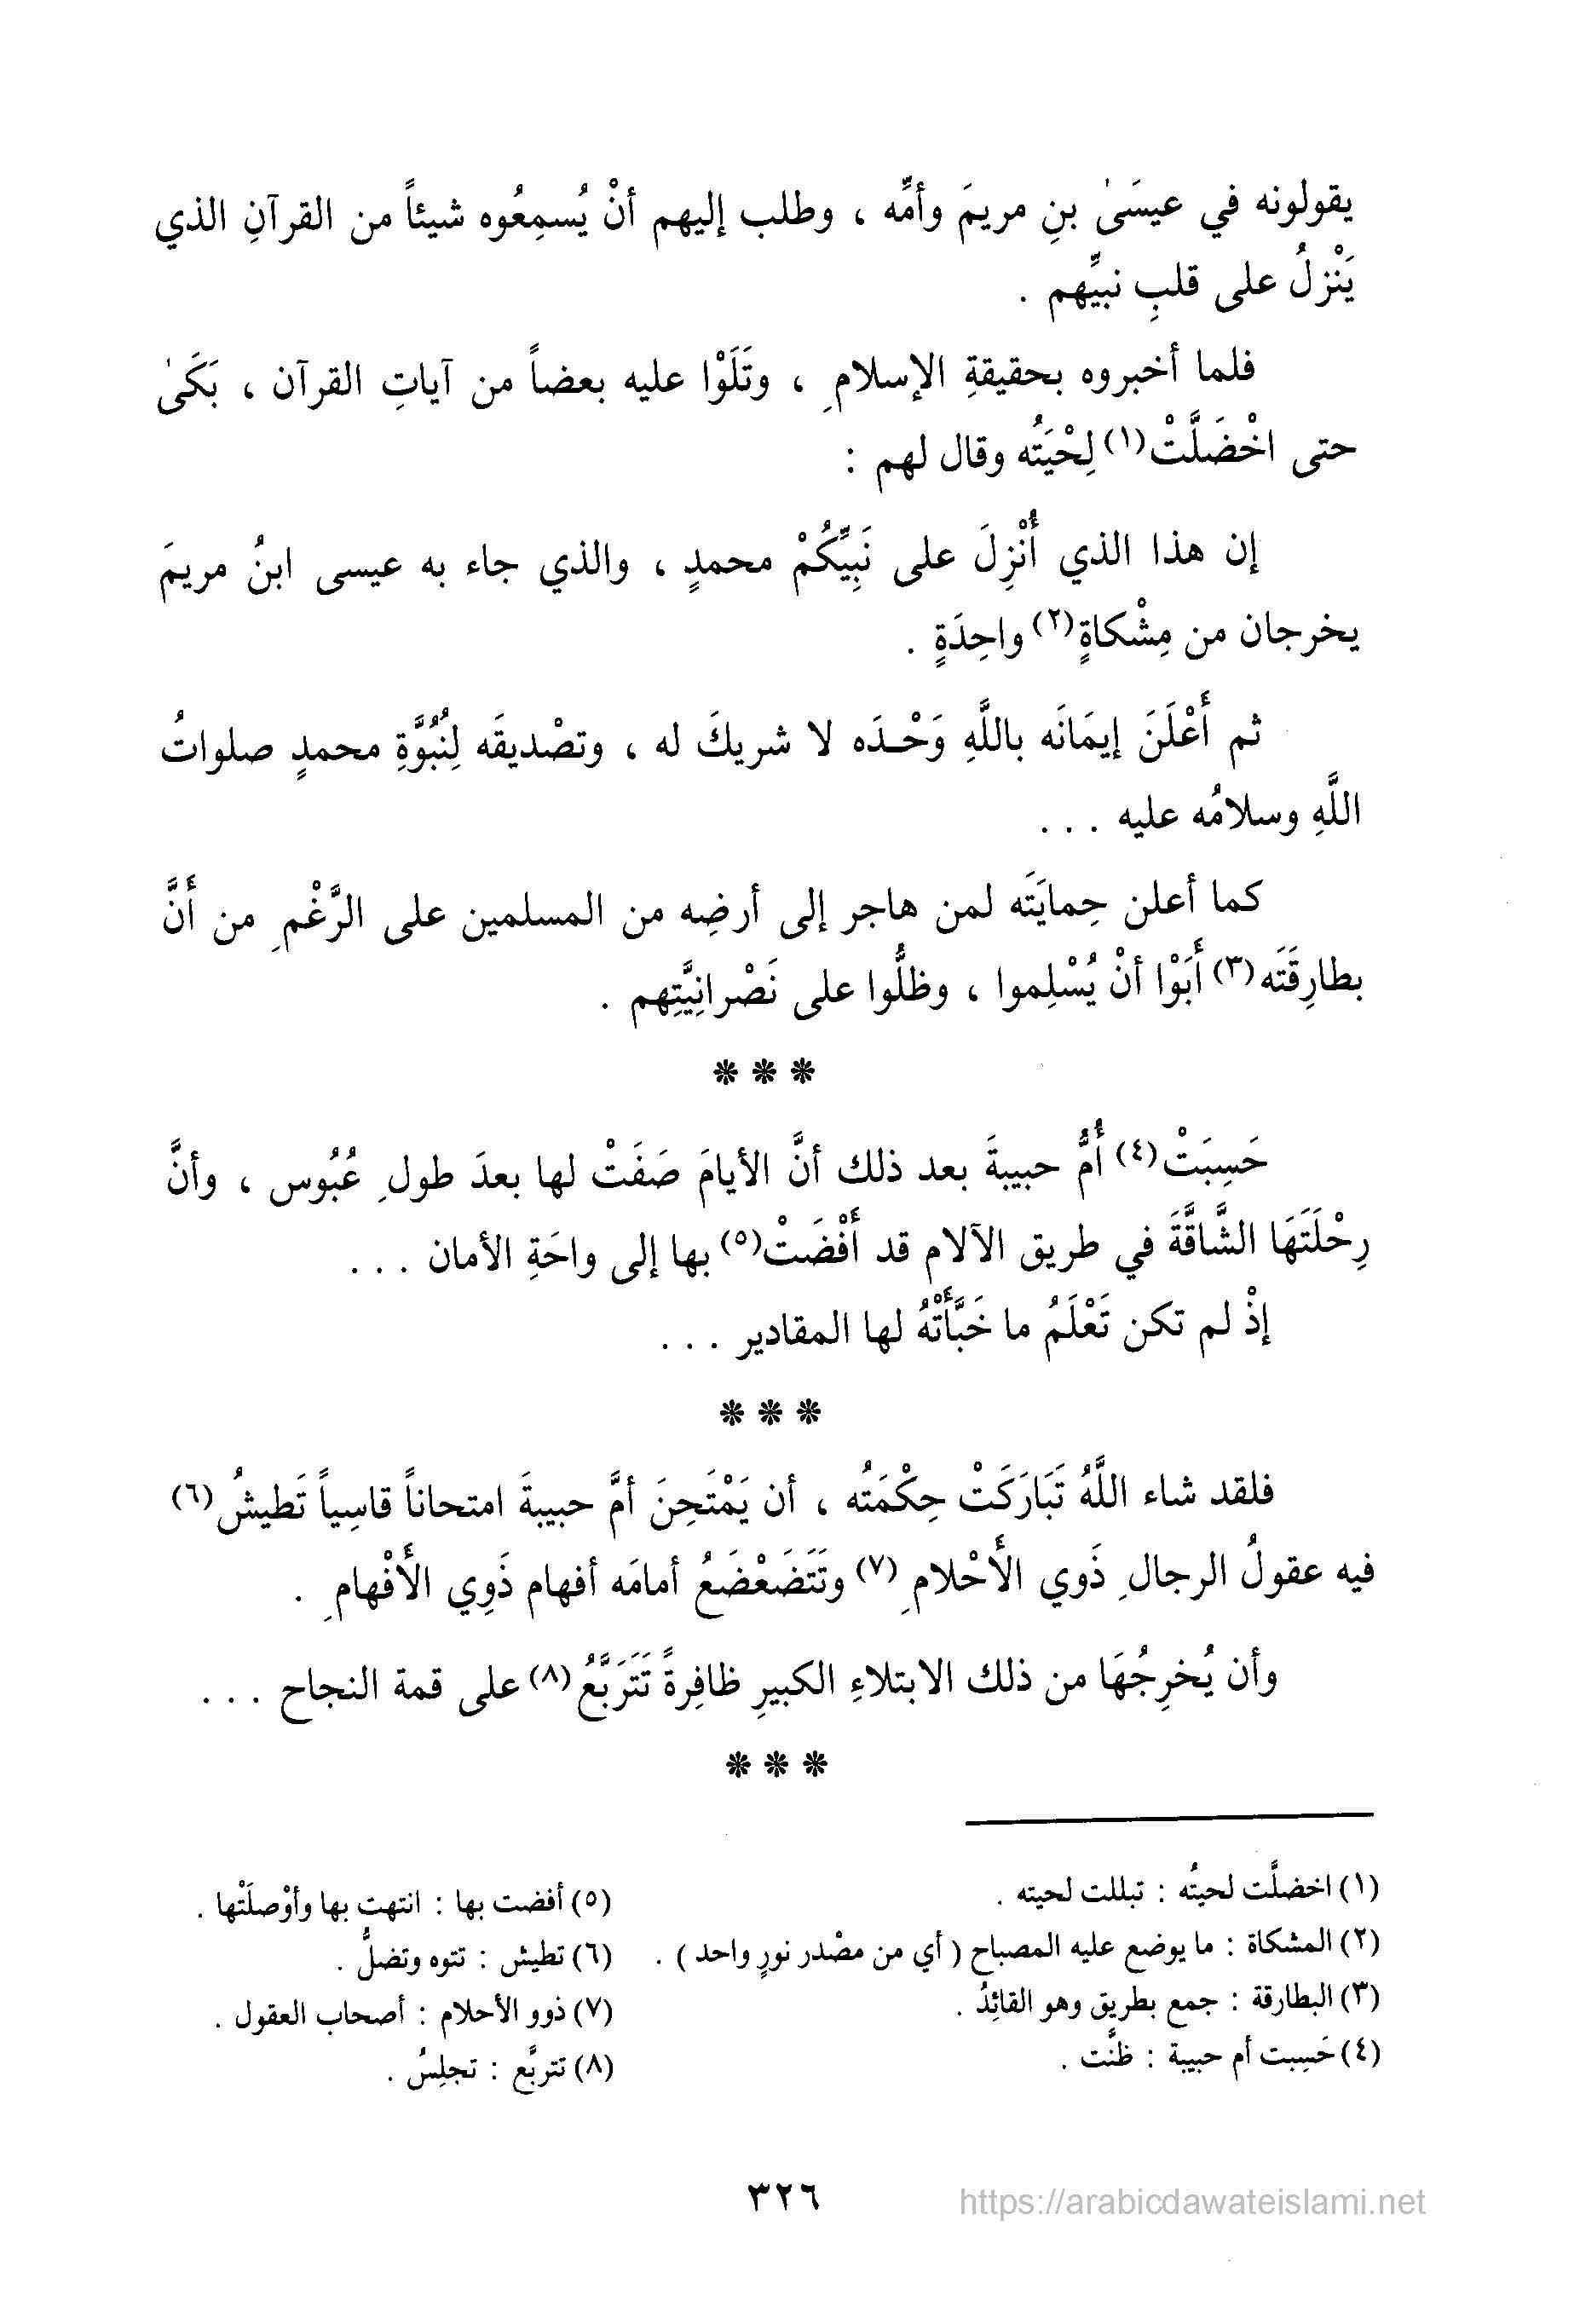 يقولونه في عيسَىٰ بنِ مريمَ وأمِّه ، وطلب إليهم أنْ يُسمِعُوه شيئاً من القرآنِ الذي
يَنْزلُ على قلبِ نبيِّهم .
فلما أخبروه بحقيقةِ الإسلامِ ، وتَلَوْا عليه بعضاً من آياتِ القرآن ، بَكَىٰ
حتى اخْضَلَّتْ(١) لِحْيَتُه وقال لهم :
إن هذا الذي أُنْزِلَ على نَبِيِّكُمْ محمدٍ ، والذي جاء به عيسى ابنُ مريمَ
يخرجان من مِشْكاةٍ(٢) واحِدَةٍ .
ثم أَعْلَنَ إيمَانَه باللَّهِ وَحْـدَه لا شريكَ له ، وتصْديقَه لِنُبُوَّةِ محمدٍ صلواتُ
اللَّهِ وسلامُه عليه . . .
كما أعلن حِمايَتَه لمن هاجر إلى أرضِه من المسلمين على الرَّغْمِ من أَنَّ
بطارِقَتَه(٣) أَبَوْا أنْ يُسْلِموا ، وظلُّوا على نَصْرانِيَّتِهم .
* * *
حَسِبَتْ(٤) أُمُّ حبيبةَ بعد ذلك أنَّ الأيامَ صَفَتْ لها بعدَ طولِ عُبُوس ، وأنَّ
رِحْلَتَهَا الشَّاقَّةَ في طريق الآلام قد أَفْضَتْ(٥) بها إلى واحَةِ الأمان . . .
إذْ لم تكن تَعْلَمُ ما خَبَّأَتْهُ لها المقادير . . .
* * *
فلقد شاء اللَّهُ تَبَارَكَتْ حِكْمَتُه ، أن يَمْتَحِنَ أمَّ حبيبةَ امتحاناً قاسِياً تَطيشُ(٦)
فيه عقولُ الرجالِ ذَوي الأَحْلامِ(٧) وتَتَضَعْضَعُ أمامَه أفهام ذَوِي الأَفْهامِ .
وأن يُخرِجُهَا من ذلك الابتلاءِ الكبيرِ ظافِرةً تَتَرَبَّعُ(٨) على قمة النجاح . . .
* * *
(١) اخضلَّت لحيتُه : تبللت لحيته .
(٢) المشكاة : ما يوضع عليه المصباح ( أي من مصْدر نورٍ واحد ) .
(٣) البطارقة : جمع بطريق وهو القائِدُ .
(٤) حَسِبت أم حبيبة : ظنَّت .
(٥) أفضت بها : انتهت بها وأوْصلَتْها .
(٦) تطيش : تتوه وتضلُّ .
(٧) ذوو الأحلام : أصحاب العقول .
(٨) تتربَّع : تجلِسُ .
٣٢٦
https://arabicdawateislami.net